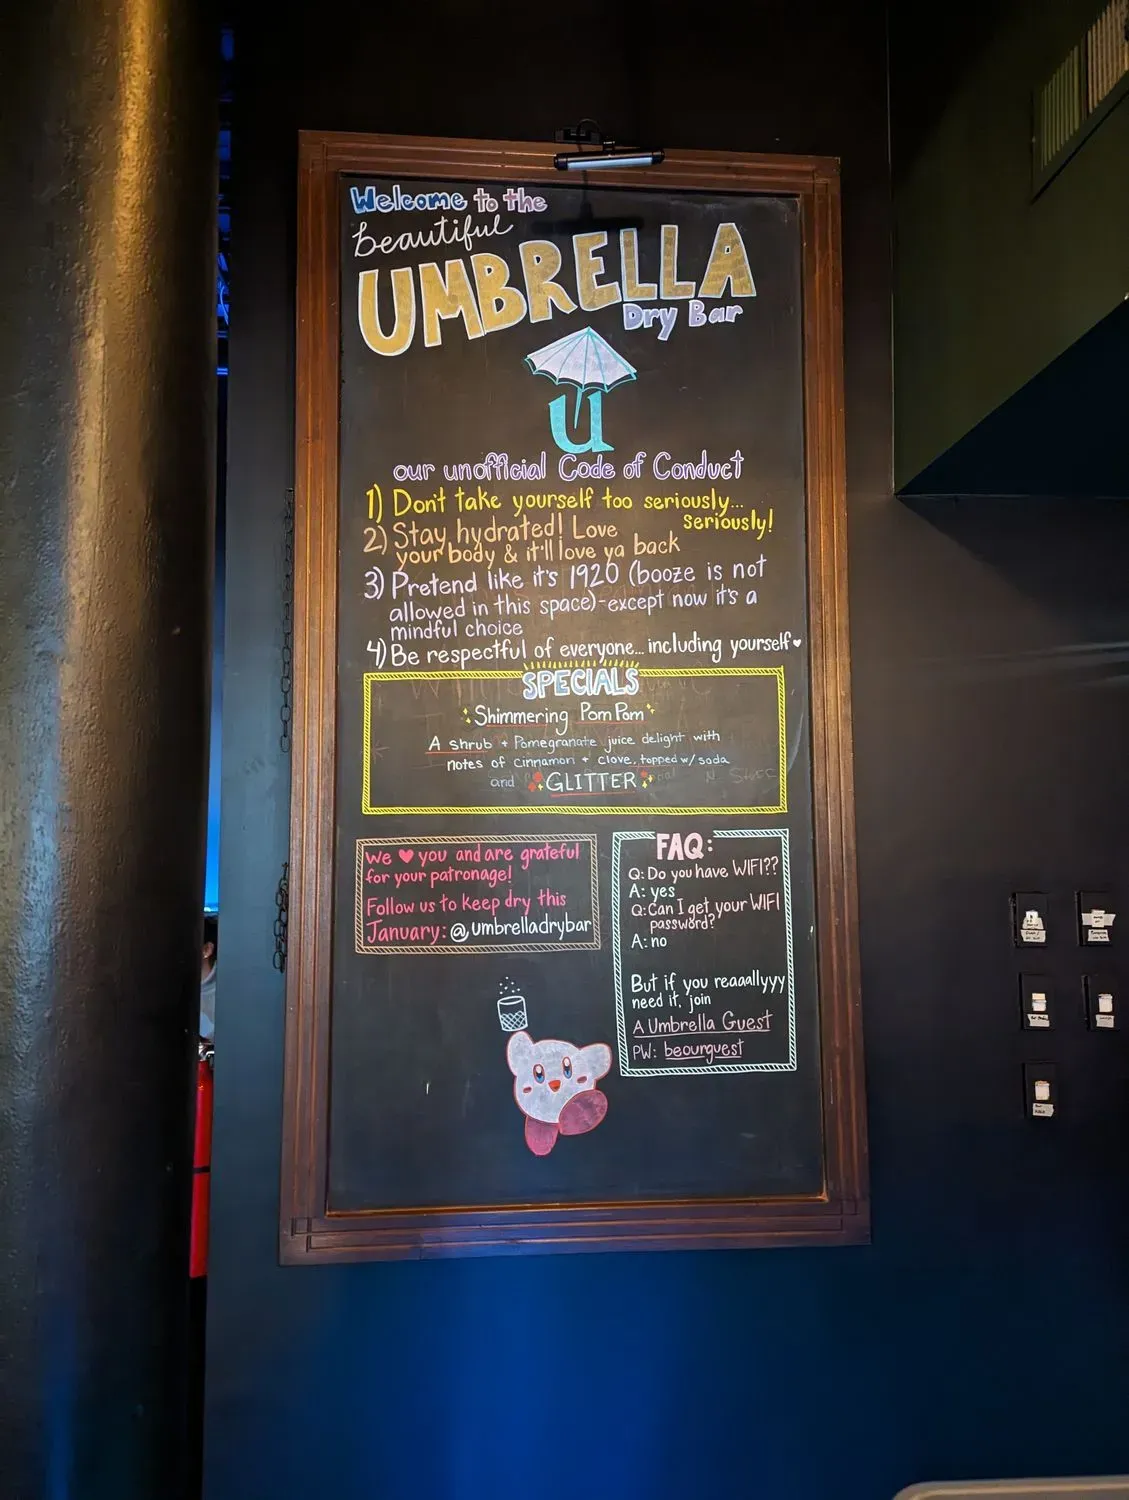 Welcome to the
beautiful
UMBRELLA
Dry Bar
u
our unofficial Code of Conduct
1) Don't take yourself too seriously...
seriously!
2) Stay hydrated! Love
your body & it'll love ya back
3) Pretend like it's 1920 (booze is not
allowed in this space)-except now it's a
mindful choice
4) Be respectful of everyone... including yourself♥
SPECIALS
Shimmering Pom Pom
A shrub + Pomegranate juice delight with
notes of cinnamon + clove, topped w/ soda
and GLITTER
We ♥ you and are grateful
for your patronage!
Follow us to keep dry this
January: @umbrelladrybar
FAQ:
Q: Do you have WIFI??
A: yes
Q: Can I get your WIFI
password?
A: no
But if you reaaallyyy
need it, join
A Umbrella Guest
PW: beourguest